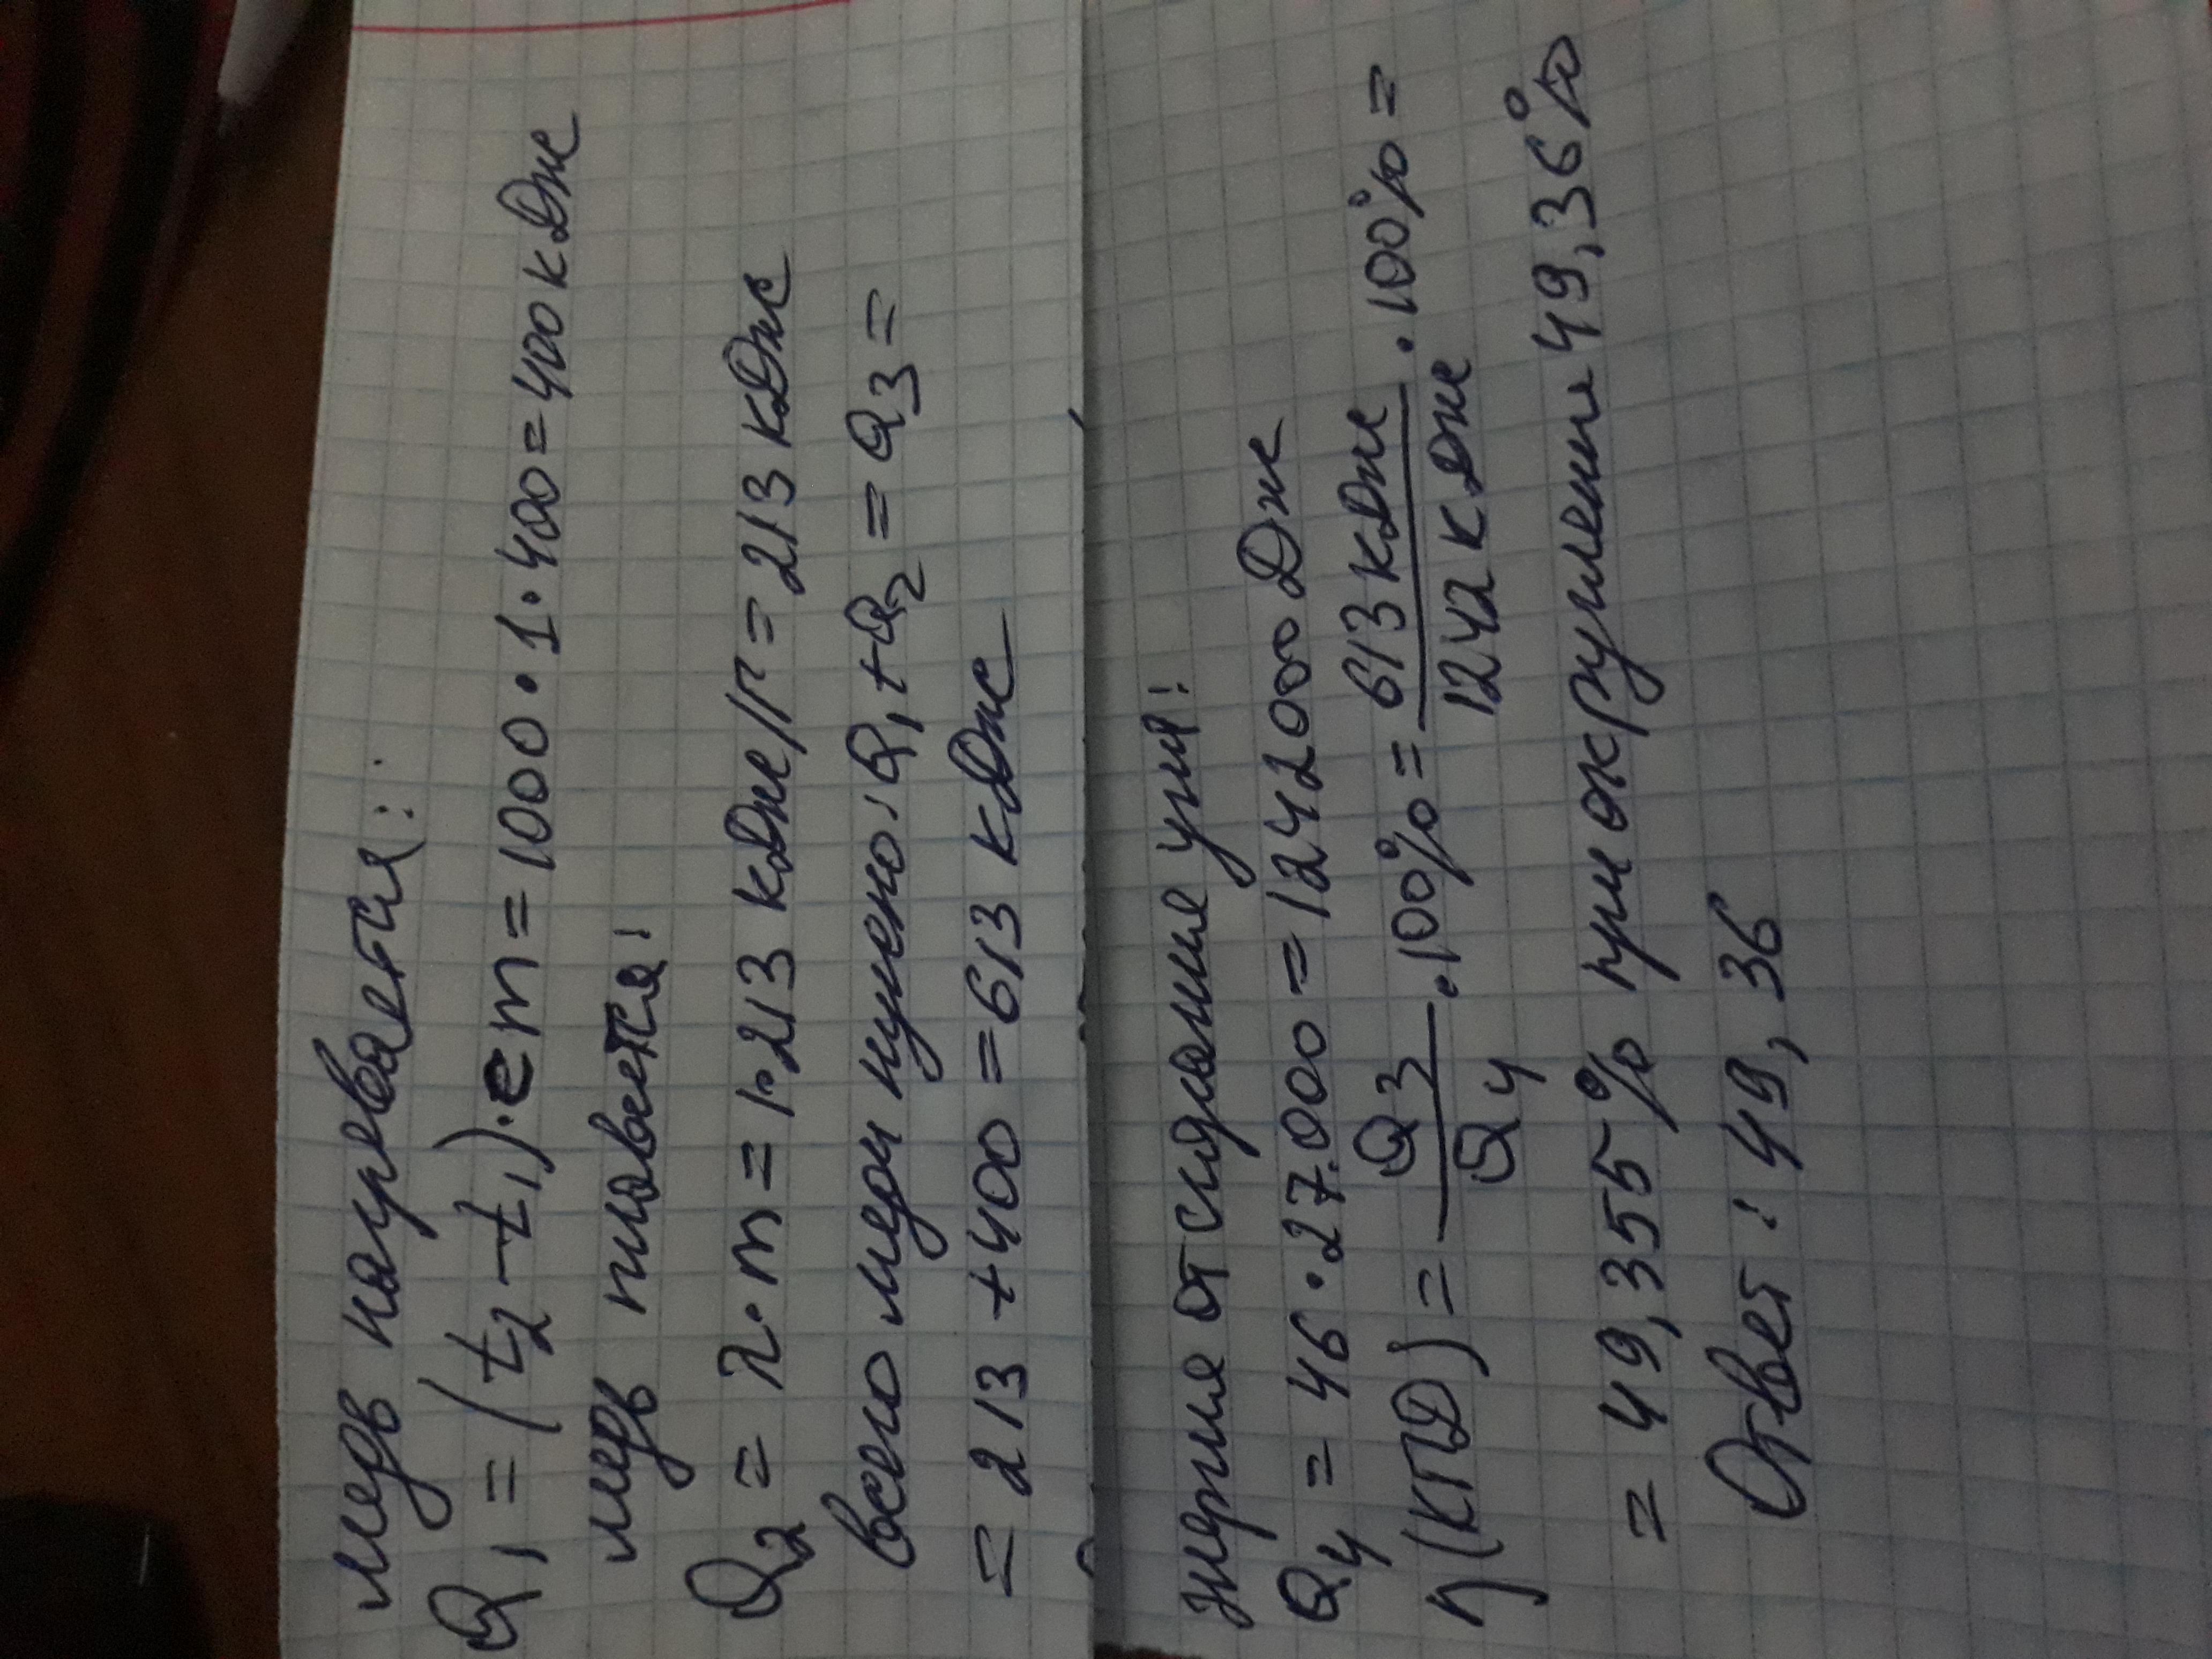 медь нагревается:
Q₁ = (t₂ - t₁)·cm = 1000·1·400 = 400 кДж
медь плавется:
Q₂ = λ·m = 1·213 кДж/г = 213 кДж
всего меди нужено: Q₁ + Q₂ = Q₃ =
= 213 + 400 = 613 кДж
энергия от сгорания угля:
Q₄ = 46·27.000 = 1242000 Дж
η(КПД) = Q₃/Q₄ · 100% = 613 кДж/1242 кДж · 100% =
= 49,355% при округлении 49,36%
Ответ: 49,36